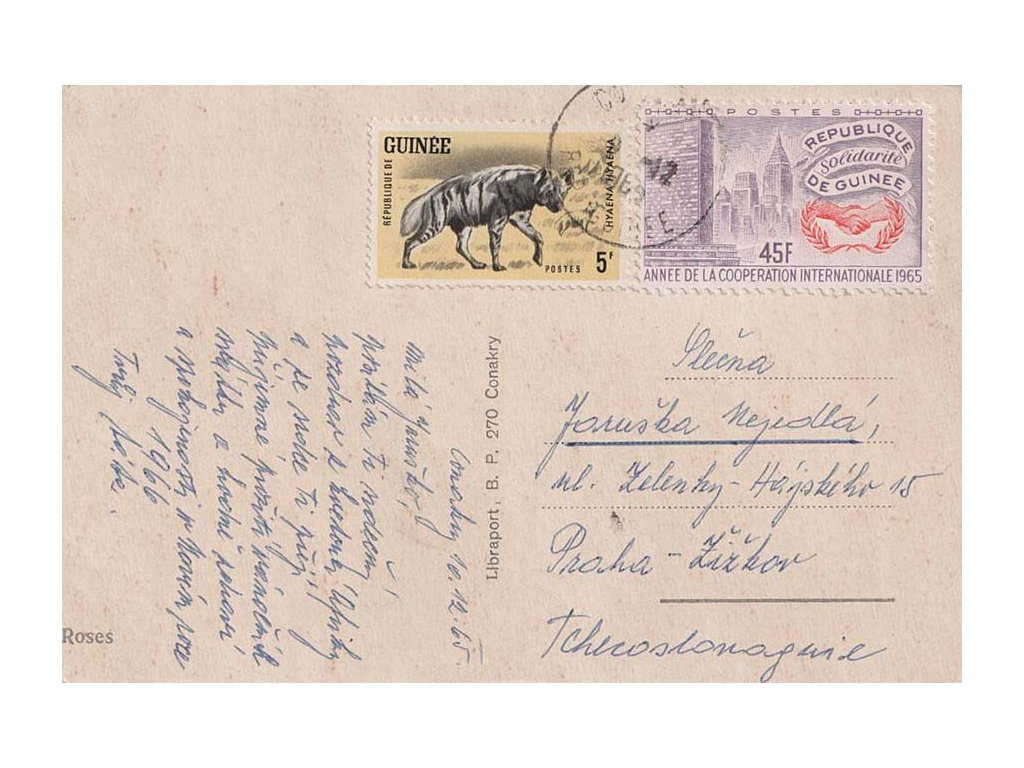 RÉPUBLIQUE DE
GUINÉE
HYAENA HYAENA
POSTES
5F
POSTES
REPUBLIQUE
Solidarité
DE GUINEE
45F
ANNEE DE LA COOPERATION INTERNATIONALE 1965
Conakry 10.12.65.
Milá Jaruško,
posílám Ti srdečný
pozdrav z
a že srdce Ti přeji
příjemné prožití vánočních
svátků a hodně zdraví
a spokojenosti v Novém roce
1966
Libraport, B. P. 270 Conakry
Roses
Slečna
Jaruška Nejedlá,
ul. Zelenky-Hájského 15
Praha - Žižkov
Tchecoslovaquie